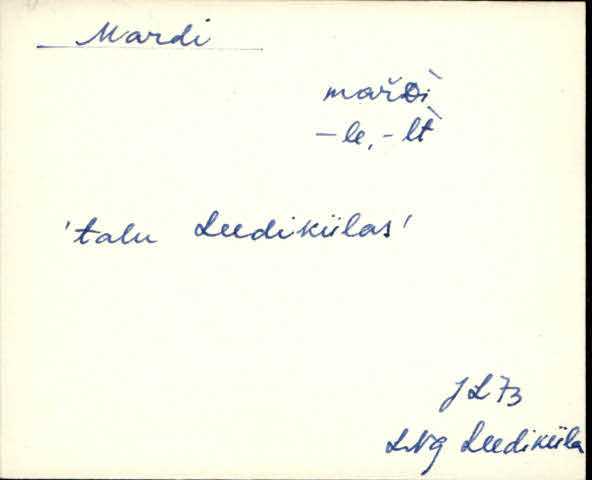 Mardi
mařDì
-le, -lt̀
'talu Leediküĺas'
JL73
LNg Leediküla